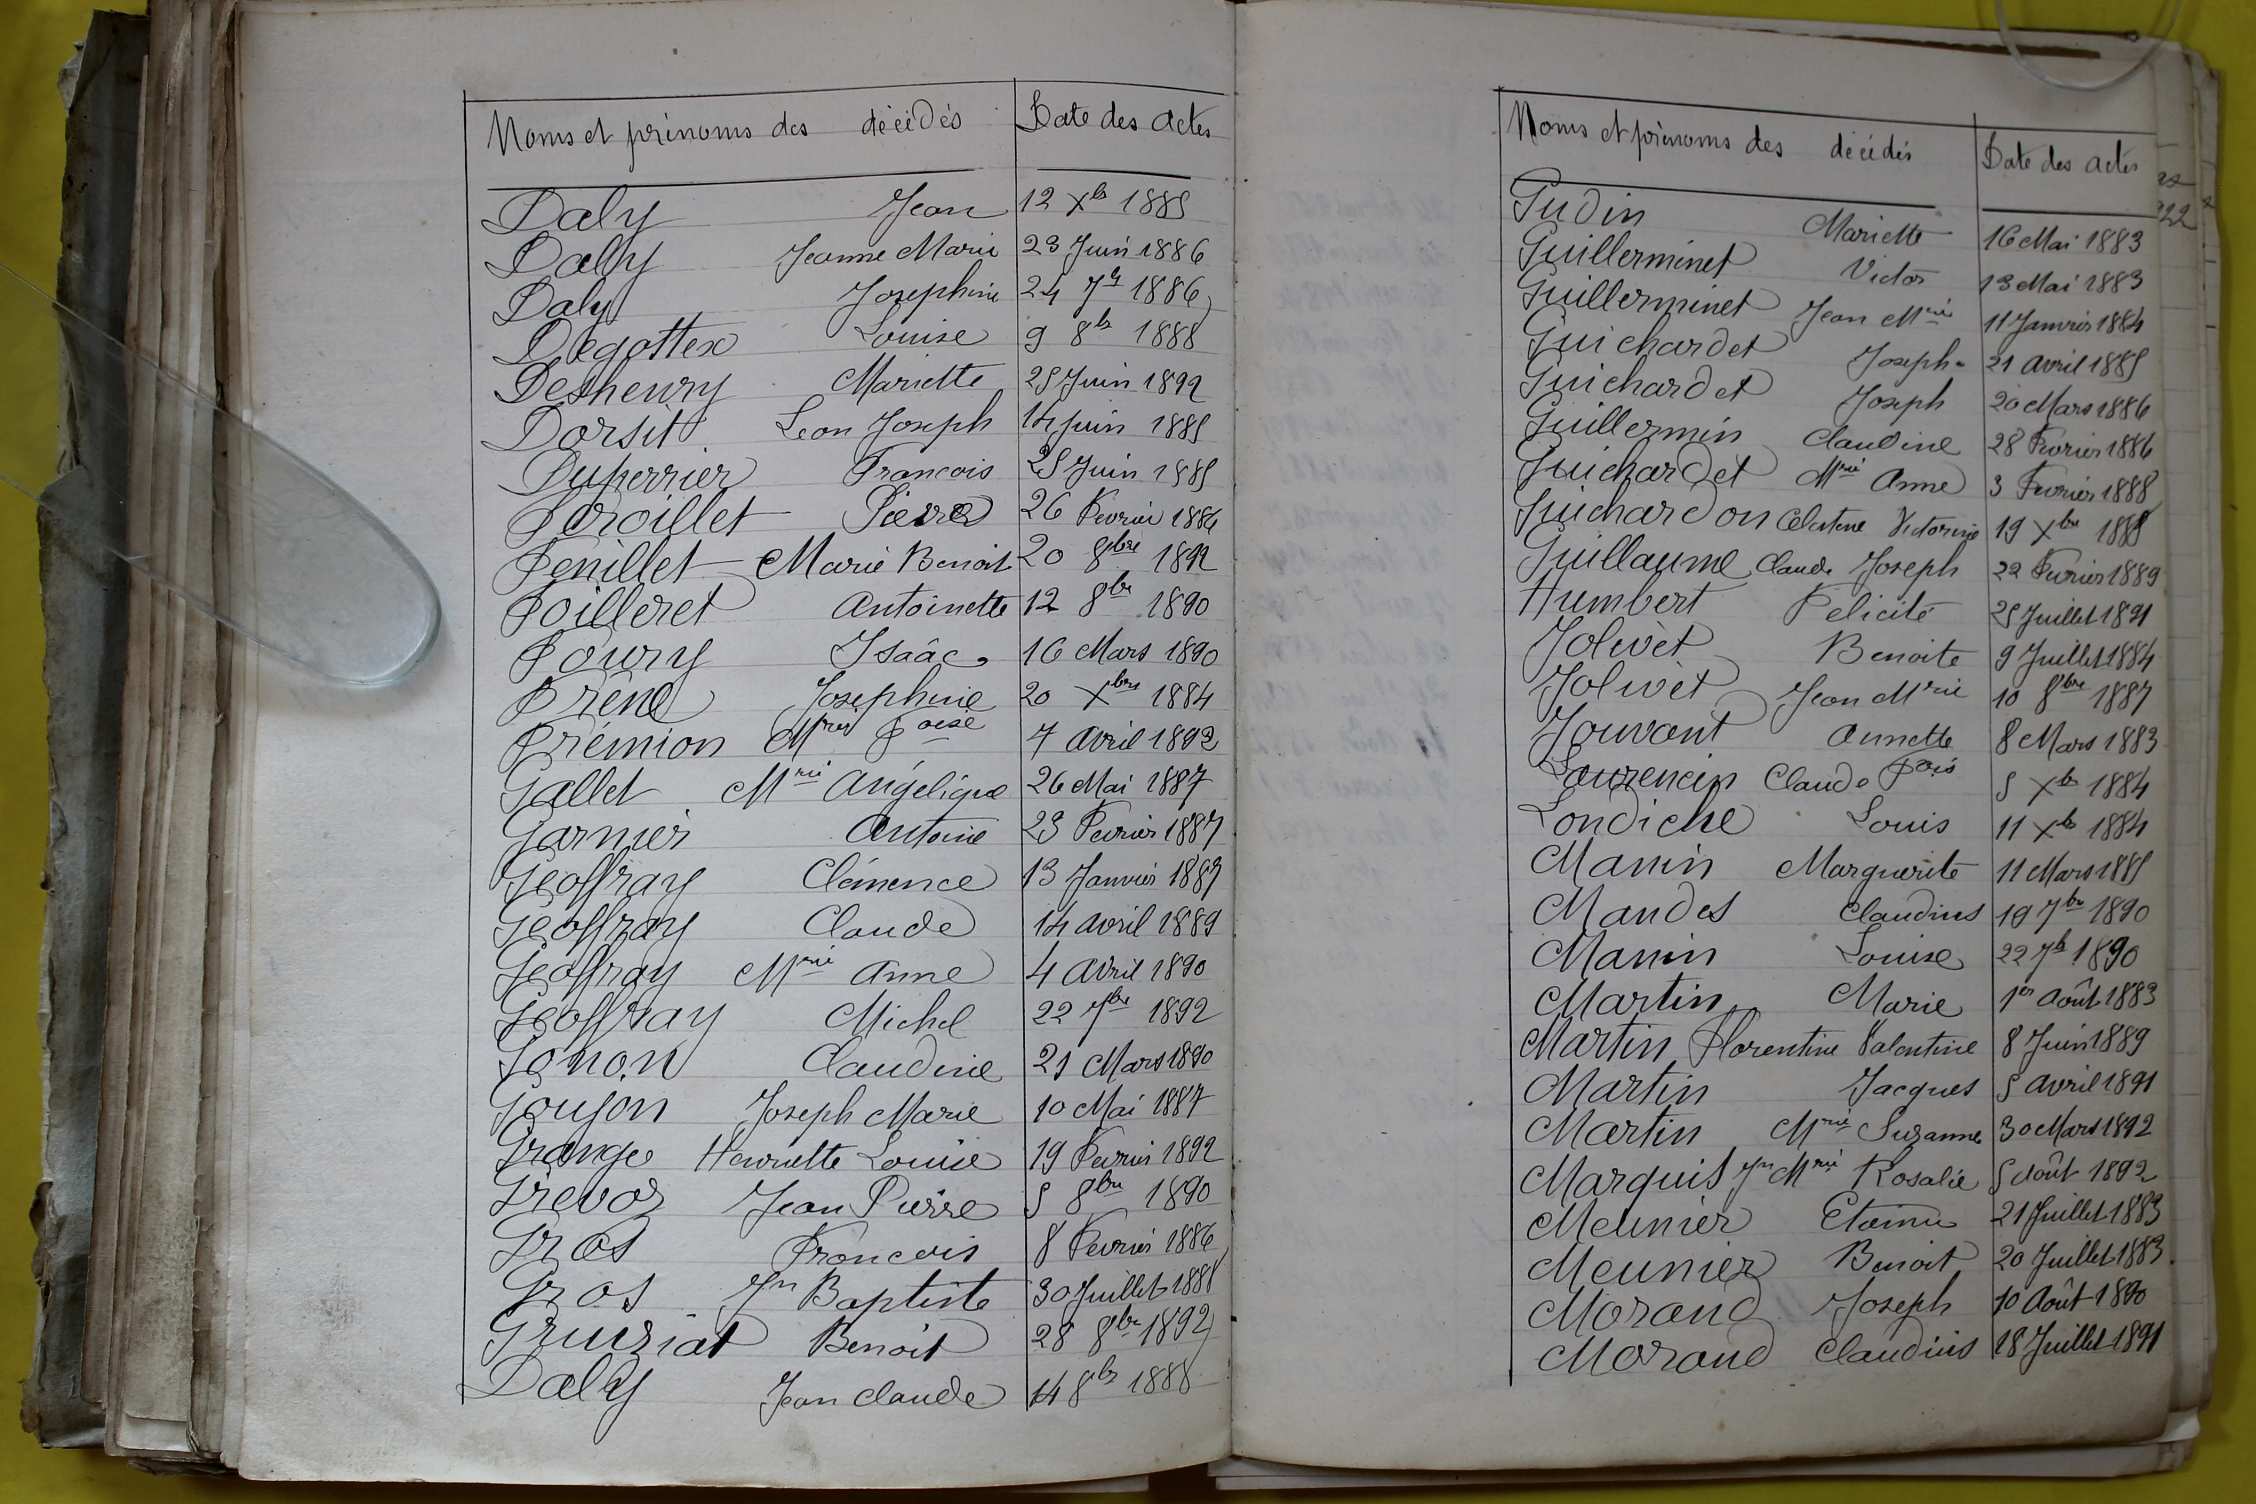 Noms et prénoms des décédés Date des actes
Daly Jean 12 Xbr 1885
Daly Jeanne Marie 23 Juin 1886
Daly Josephine 24 7br 1886
Degottex Louise 9 8br 1888
Desheury Mariette 25 Juin 1892
Dorsit Leon Joseph 14 juin 1885
Duperrier Francois 25 Juin 1885
Feroillet Pierre 26 Fevrier 1886
Fenillet Marie Benoit 20 8bre 1892
Foilleret Antoinette 12 8bre 1890
Foury Isaâc 16 Mars 1890
Frène Josephine 20 Xbre 1884
Frémion Mrie Foise 7 Avril 1892
Gallet Mrie Angélique 26 Mai 1887
Garnier Antoine 23 Fevrier 1887
Geoffray Clémence 13 Janvier 1887
Geoffray Claude 14 avril 1889
Geoffray Mrie Anne 4 Avril 1890
Geoffray Michel 22 7bre 1892
Gonon Claudine 21 Mars 1890
Goujon Joseph Marie 10 Mai 1887
Grange Henriette Louise 19 Fevrier 1892
Grevoz Jean Pierre 5 8bre 1890
Gros Francois 8 Fevrier 1886
Gros Jn Baptiste 30 Juillet 1888
Gruziat Benoit 28 8bre 1892
Daly Jean Claude 14 8br 1888
Noms et prénoms des décédés Date des actes
Gudin Mariette 16 Mai 1883
Guillerminet Victor 13 Mai 1883
Guillerminet Jean Mrie 11 Janvier 1884
Guichardet Joseph 21 avril 1885
Guichardet Joseph 20 Mars 1886
Guillermin Claudine 28 Fevrier 1886
Guichardet Mrie Anne 3 Fevrier 1888
Guichardon Celestine Victorine 19 Xbre 1888
Guillaume Claude Joseph 22 Fevrier 1889
Humbert Félicité 25 Juillet 1891
Jolivèt Benoite 9 Juillet 1884
Jolivèt Jean Mrie 10 8bre 1887
Jouvant Annette 8 Mars 1883
Laurencin Claude Fois 5 Xbr 1884
Londiche Louis 11 Xbr 1884
Manin Marguerite 11 Mars 1885
Mandes Claudius 19 7bre 1890
Manin Louise 22 7b 1890
Martin Marie 1er Août 1883
Martin Florentine Valentine 8 Juin 1889
Martin Jacques 5 avril 1891
Martin Mrie Suzanne 30 Mars 1892
Marquis Jn Mrie Rosalie 5 Août 1892
Meunier Etienne 21 Juillet 1883
Meunier Benoit 20 Juillet 1883
Morand Joseph 10 Août 1890
Morand Claudius 18 Juillet 1891